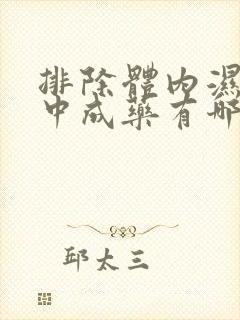 排除體內濕
中成藥有哪
邱太三